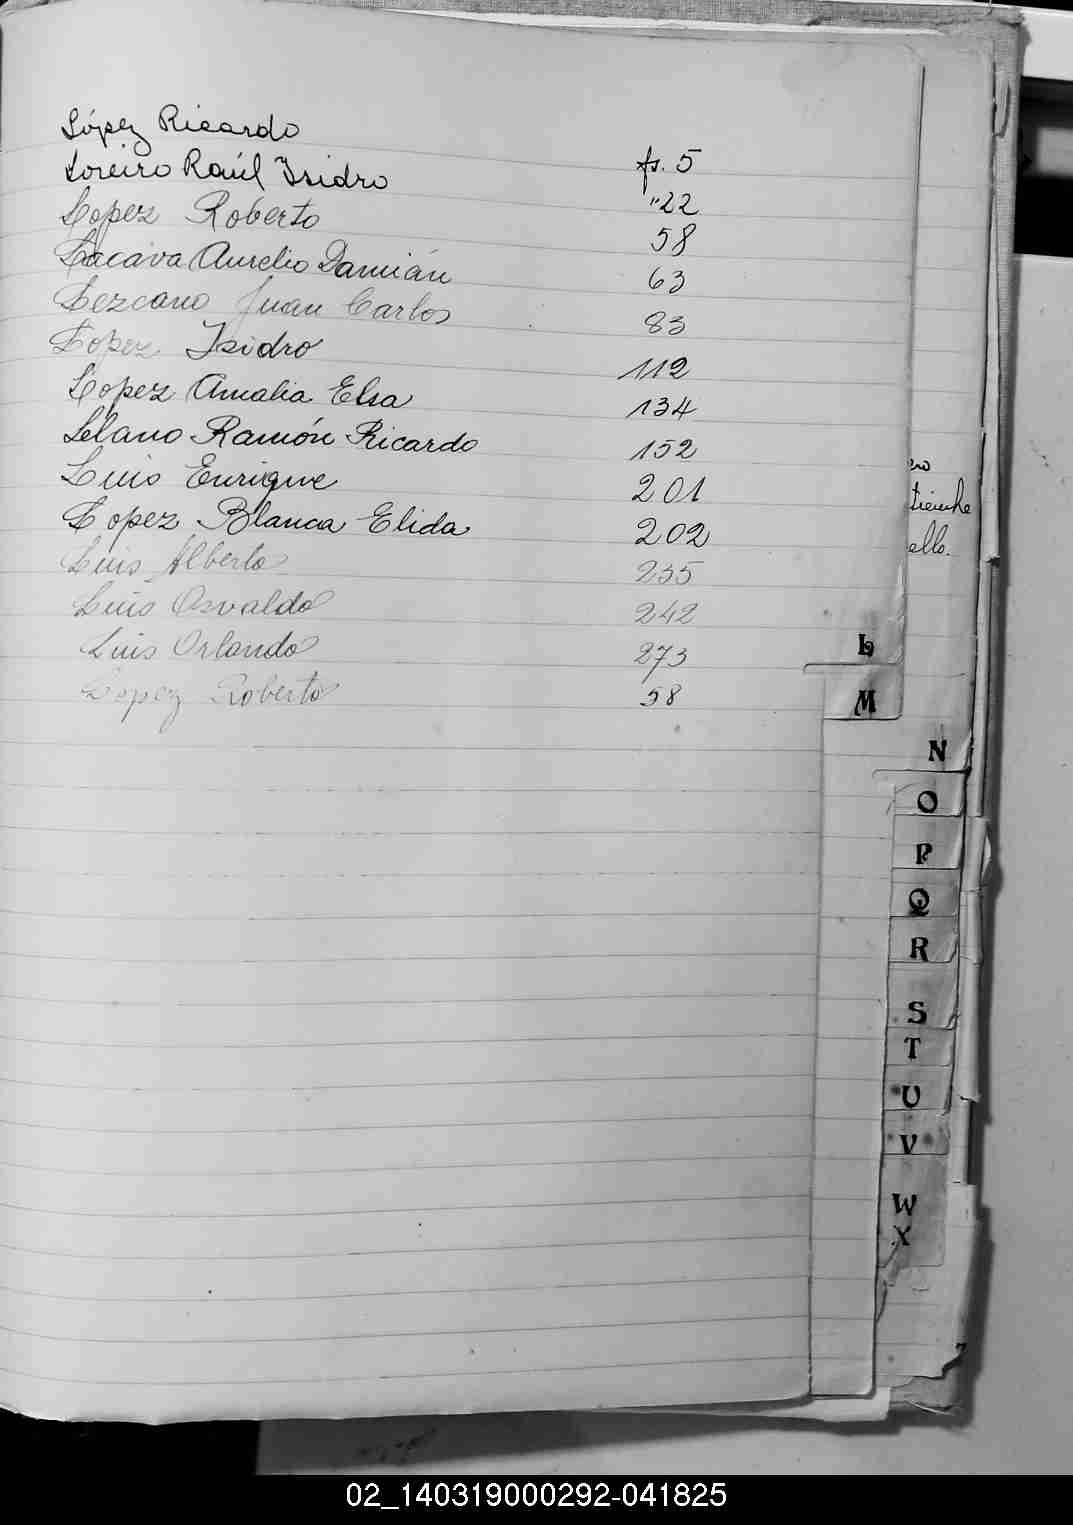 López Ricardo fs. 5
Loreiro Raúl Isidro "22
Lopez Roberto 58
Lacava Aurelio Damián 63
Lezcano Juan Carlos 83
Lopez Isidro 112
Lopez Amalia Elsa 134
Lelano Ramón Ricardo 152
Luis Enrique 201
Lopez Blanca Elida 202
Luis Alberto 235
Luis Osvaldo 242
Luis Orlando 273
Lopez Roberto 58
L
M
N
O
P
Q
R
S
T
U
V
W
X
02_140319000292-041825